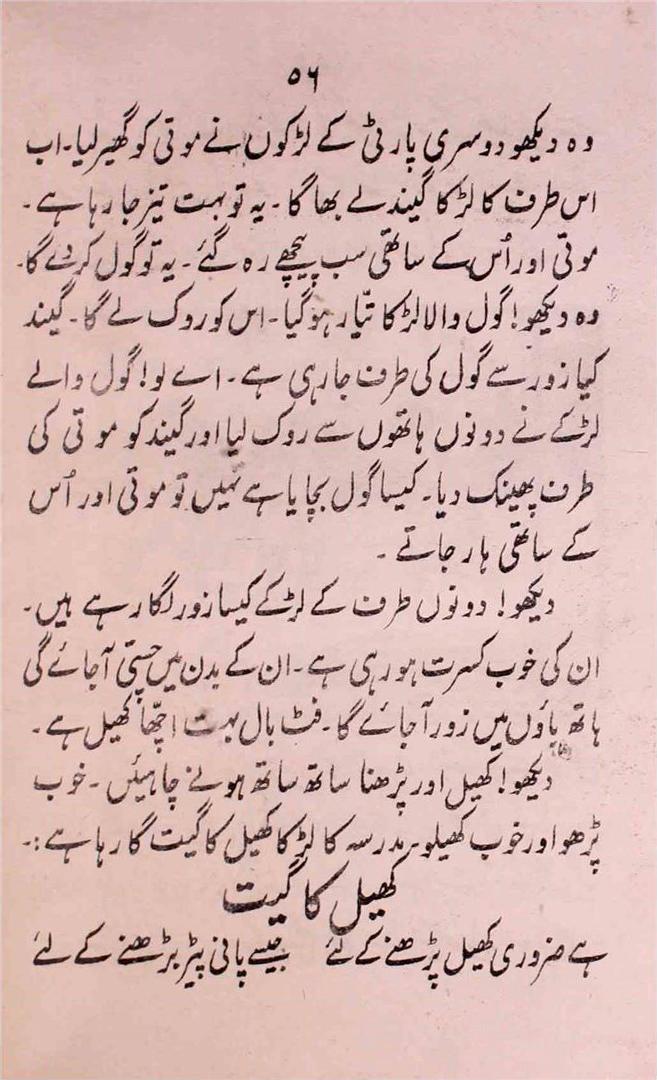 ۵۶
وہ دیکھو دوسری پارٹی کے لڑکوں نے موتی کو گھیر لیا۔ اب
اس طرف کا لڑکا گیند لے بھاگا۔ یہ تو بہت تیز جا رہا ہے۔
موتی اور اُس کے ساتھی سب پیچھے رہ گئے۔ یہ تو گول کر دے گا۔
وہ دیکھو! گول والا لڑکا تیّار ہو گیا۔ اس کو روک لے گا۔ گیند
کیا زور سے گول کی طرف جا رہی ہے۔ اے لو! گول والے
لڑکے نے دونوں ہاتھوں سے روک لیا اور گیند کو موتی کی
طرف پھینک دیا۔ کیسا گول بچایا ہے نہیں تو موتی اور اُس
کے ساتھی ہار جاتے۔
دیکھو! دونوں طرف کے لڑکے کیسا زور لگا رہے ہیں۔
ان کی خوب کسرت ہو رہی ہے۔ ان کے بدن میں چستی آ جائے گی
ہاتھ پاؤں میں زور آ جائے گا۔ فٹ بال بہت اچھّا کھیل ہے۔
دیکھو! کھیل اور پڑھنا ساتھ ساتھ ہونے چاہئیں۔ خوب
پڑھو اور خوب کھیلو۔ مدرسہ کا لڑکا کھیل کا گیت گا رہا ہے:۔
کھیل کا گیت
ہے ضروری کھیل پڑھنے کے لئے جیسے پانی پیڑ بڑھنے کے لئے